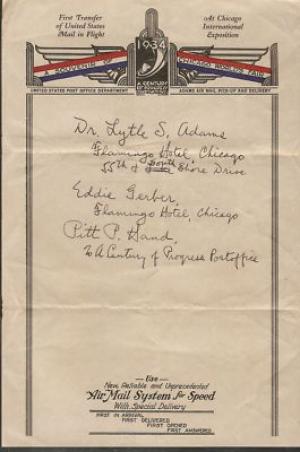 First Transfer
of United States
Mail in Flight
At Chicago
International
Exposition
1934
A SOUVENIR OF
CHICAGO WORLD'S FAIR
A CENTURY
OF PROGRESS
UNITED STATES POST OFFICE DEPARTMENT
ADAMS AIR MAIL PICK-UP AND DELIVERY
Dr. Lytle S. Adams
Flamingo Hotel, Chicago
55th & South Shore Drive
Eddie Gerber,
Flamingo Hotel, Chicago
Pitt P. Hand,
% A Century of Progress Postoffice
— Use —
New, Reliable and Unprecedented
Air Mail System for Speed
With Special Delivery
FIRST IN ARRIVAL
FIRST DELIVERED
FIRST OPENED
FIRST ANSWERED